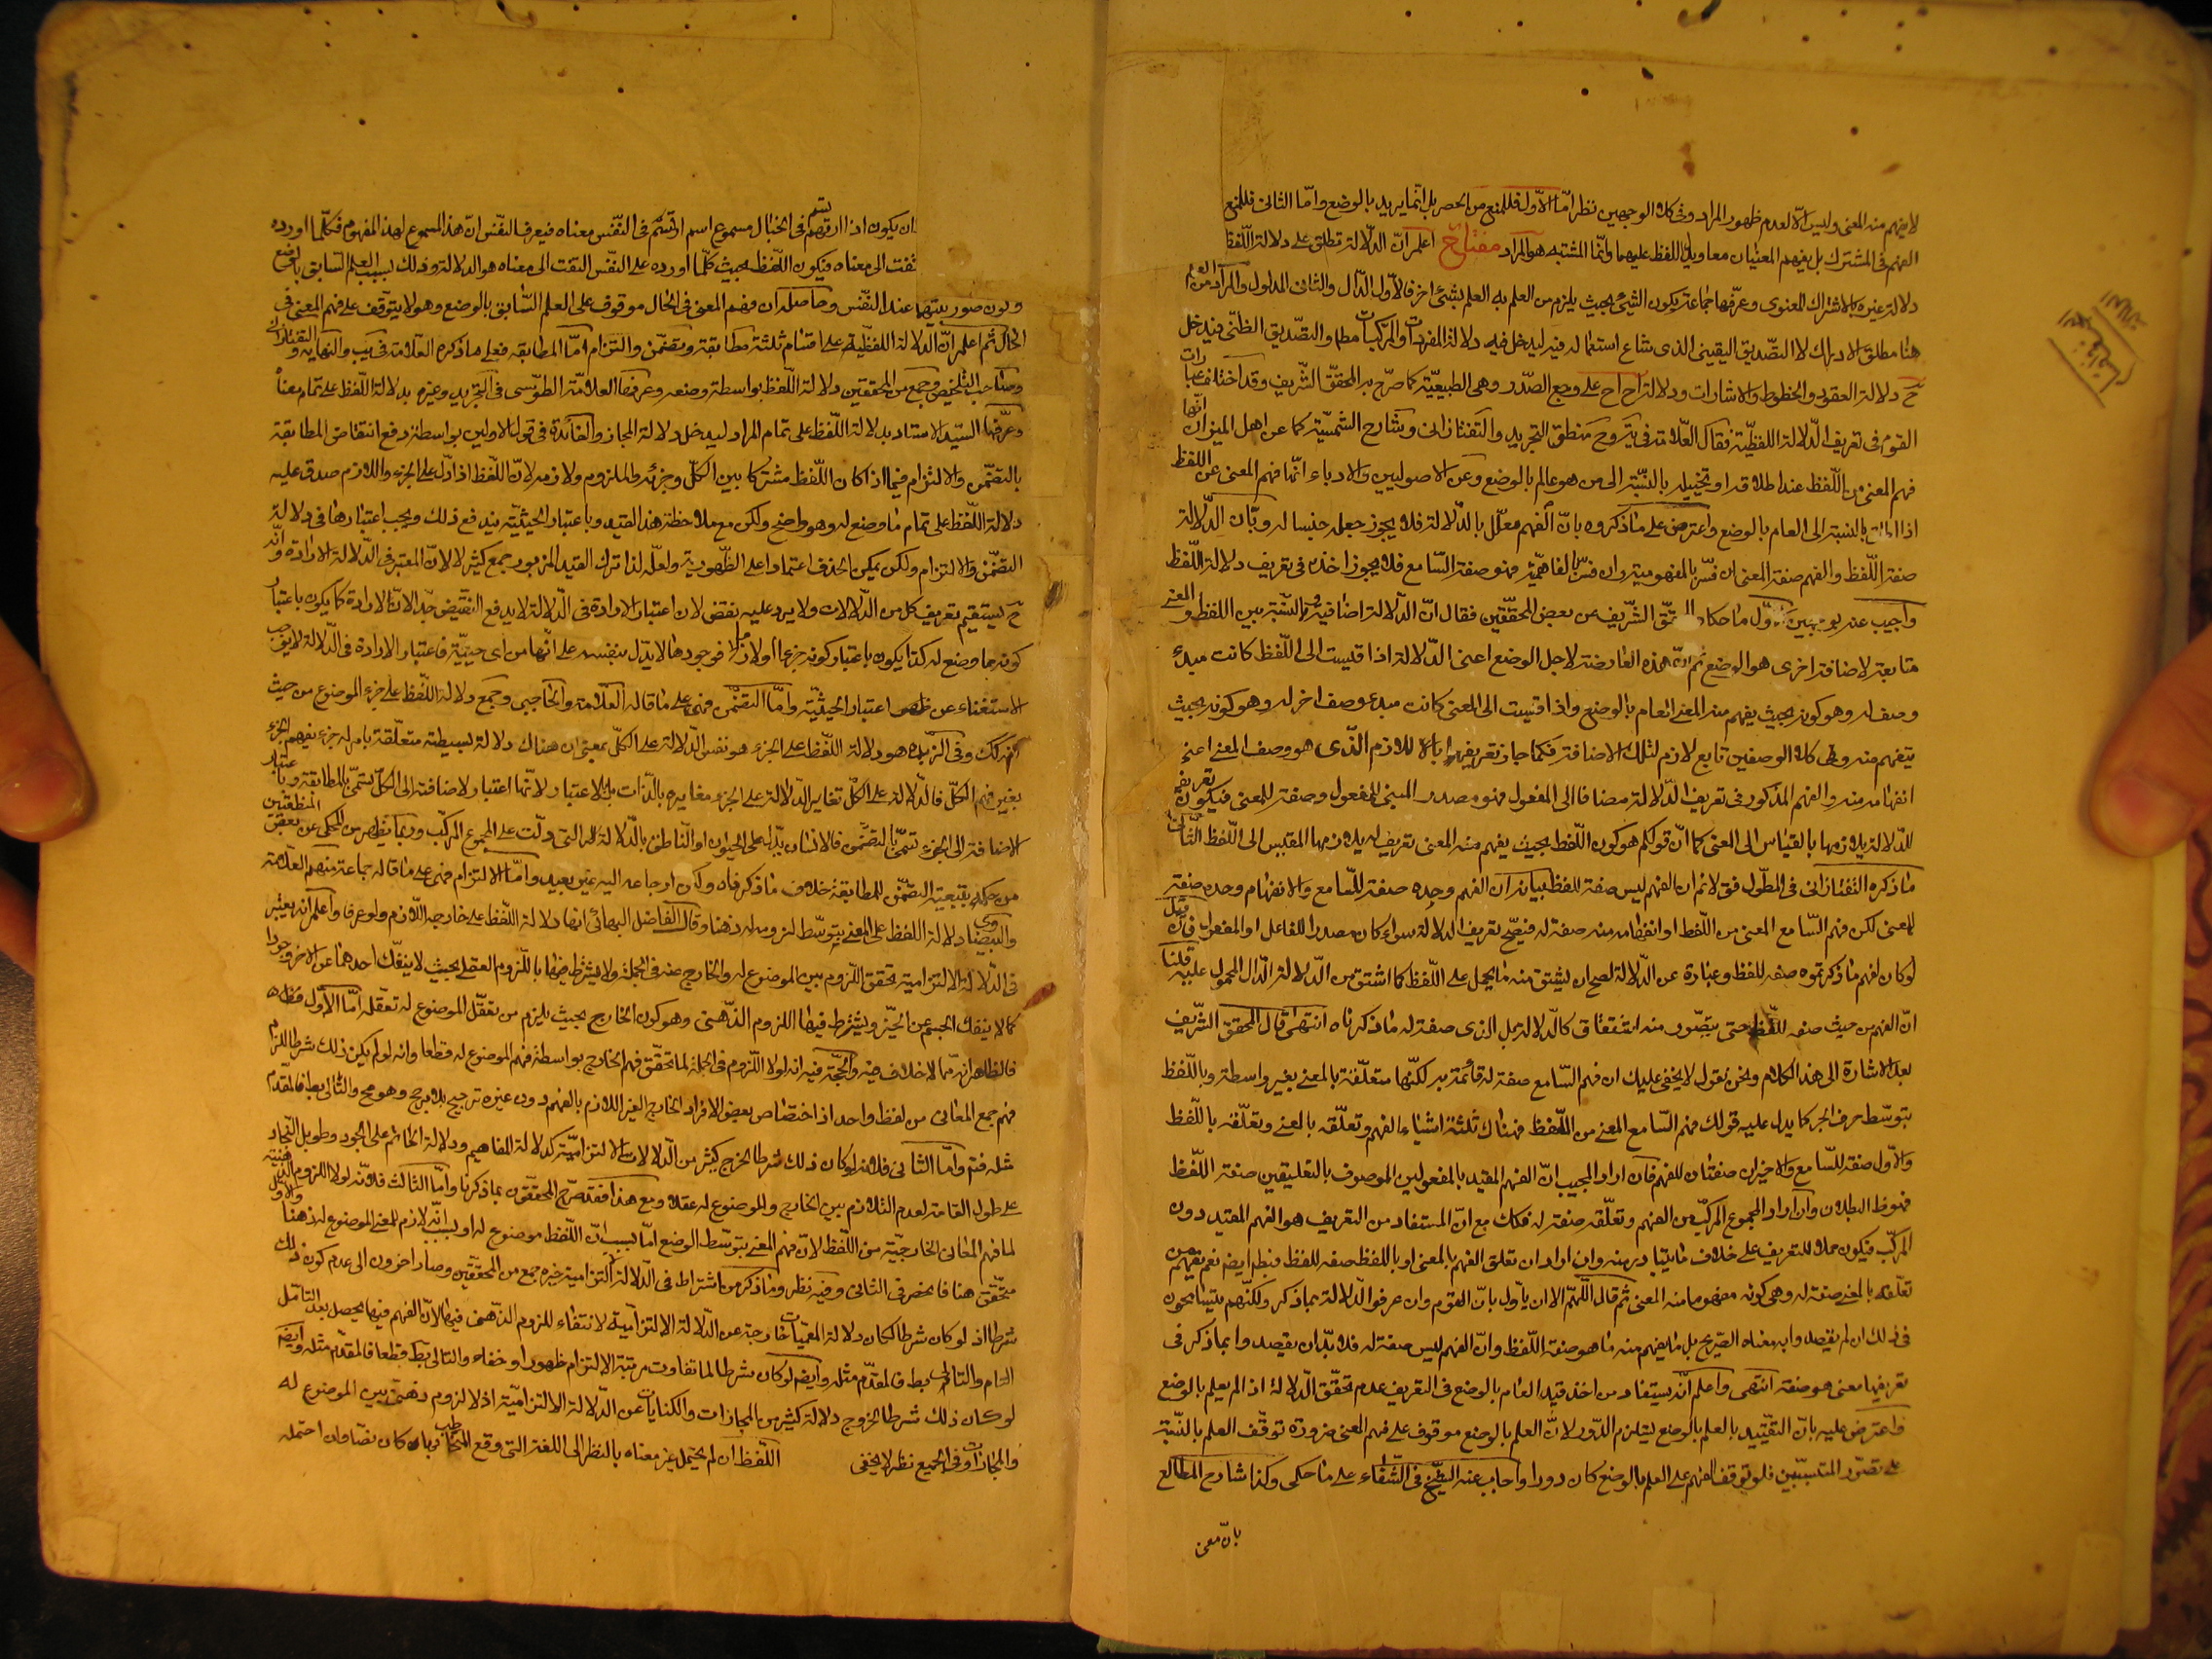 لا يفهم منه المعنى وليس الّا لعدم ظهور المراد وفى كلا الوجهين نظر امّا الاوّل فللمنع من الحصر بل انّما يريد بالوضع وامّا الثانى فللمنع
الفهم فى المشترك بل يفهم المعنيان معا ويدلّ اللفظ عليهما وانّما المشتبه هو المراد مفتاح اعلم انّ الدّلالة تطلق على دلالة اللّفظ
دلالة غيره بالاشتراك المعنوى وعرّفها جماعة بكون الشّئ بحيث يلزم من العلم به العلم بشئ اخر فالاوّل الدّال والثانى المدلول والمراد من العلم
هنا مطلق الادراك لا التّصديق اليقينى الذى شاع استعماله فيه ليدخل فيه دلالة المفردات والمركّبات مطلقا والتصّديق الظنّى فيدخل
ح دلالة العقود والخطوط والاشارات ودلالة اح اح على وجع الصّدر وهى الطبيعيّة كما صرّح به المحقّق الشّريف وقد اختلف عبارات
القوم فى تعريف الدّلالة اللفظيّة فقال العّلامة فى شرح منطق التجريد والتفتازانى وشارح الشمسيّة كما عن اهل الميزان انّها
فهم المعنى من اللّفظ عند اطلاقه او تخييله بالنسّبة الى من هو عالم بالوضع وعن الاصوليين والادباء انّها فهم المعنى عن اللفظ
اذا اطلق بالنسبة الى العالم بالوضع واعترض على ما ذكروه بانّ الفهم معلّل بالدّلالة فلا يجوز جعله جنسا له وبانّ الدّلالة
صفة اللّفظ والفهم صفة المعنى ان فسّر بالمفهوميّة وان فسّر بالفاهميّة فهو صفة السّامع فلا يجوز اخذه فى تعريف دلالة اللّفظ
واجيب عنه بوجهين الاوّل ما حكاه المحقّق الشّريف عن بعض المحقّقين فقال انّ الدّلالة اضافية ونسبة بين اللفظ والمعنى
تابعة لاضافة اخرى هو الوضع ثم انّ هذه العارضة لاجل الوضع اعنى الدّلالة اذا قيست الى اللّفظ كانت مبدء
وصف له وهو كونه بحيث يفهم منه المعنى العالم بالوضع واذا قيست الى المعنى كانت مبدء وصف اخر له وهو كونه بحيث
يتفهم منه وفى كلا الوصفين تابع لازم لتلك الاضافة فكما جاز تعريفها باللازم الّذى هو وصف المعنى اعنى
انفهامه منه والفهم المذكور فى تعريف الدّلالة مضافا الى المفعول فهو مصدر المبنى للمفعول وصفة للمعنى فيكون تعريف
للدّلالة بلازمها بالقياس الى المعنى كما انّ قولكم هو كون اللّفظ بحيث يفهم منه المعنى تعريف له بلازمها المقيس الى اللّفظ الثّانى
ما ذكره التفتازانى فى المطّول فق لانم ان الفهم ليس صفة للفظ بيانه ان الفهم وحده صفة للسّامع والانفهام وحده صفة
للمعنى لكن فهم السّامع المعنى من اللّفظ او انفهامه منه صفة له فيصحّ تعريف الدلالة سواء كان مصدرا للفاعل او المفعول فان قيل
لو كان الفهم ما ذكرتموه صفة للفظ وعبارة عن الدّلالة لصح ان يشتق منه ما يحمل على اللّفظ كما اشتق من الدّلالة الدّال المحمول عليه قلنا
انّ الفهم من حيث صفة للّفظ حتى يتصّور منه اشتقاق كالدّلالة بل الذى صفة له ما ذكرناه انتهى قال المحقق الشريف
بعد الاشارة الى هذا الكلام ونحن نقول لا يخفى عليك ان فهم السّامع صفة له قائمة به لكنّها متعلّقة بالمعنى بغير واسطة وباللّفظ
بتوسّط حرف الجر كما يدل عليه قولك فهم السّامع المعنى من اللّفظ فهناك ثلثة اشياء الفهم وتعلّقه بالمعنى وتعلّقه باللّفظ
والاوّل صفة للسّامع والاخيران صفتان للفهم فان اراد المجيب انّ الفهم المقيد بالمفعولين الموصوف بالتعليقين صفة اللّفظ
فهو ظ البطلان وان اراد المجموع المركّب من الفهم وتعلّقه صفة له فكك مع انّ المستفاد من التعريف هو الفهم المقيد دون
المركّب فيكون حملا للتعريف على خلاف ما يتبادر منه وان اراد ان تعلق الفهم بالمعنى او باللفظ صفة للفظ فبطل ايضا نعم يفهم من
تعلّقه بالمعنى صفة له وهى كونه مفهوما منه المعنى ثم قال اللّهمّ الّا ان يأول بانّ القوم وان عرفوا الدّلالة بما ذكر ولكنّهم يتسامحون
فى ذلك ان لم يقصدوا به معناه الصّريح بل ما يفهم منه ما هو صفة اللّفظ وانّ الفهم ليس صفة له فلا بدّ ان يقصدوا بما ذكر فى
تعريفها معنى هو صفة انتهى واعلم انّه يستفاد من اخذ قيد العالم بالوضع فى التعريف عدم تحقّق الدّلالة اذ لم يعلم بالوضع
فاعترض عليه بانّ التقيّيد بالعلم بالوضع يستلزم الدّور لانّ العلم بالوضع موقوف على فهم المعنى ضرورة توقّف العلم بالنسّبة
على تصوّر المنتسبين فلو توقف الفهم على العلم بالوضع كان دورا واجاب عنه الشيخ فى الشّفاء على ما حكى وكذا شارح المطالع
بانّ معنى
ان يكون اذا ارتسم فى الخيال مسموع اسم ارتسم فى النّفس معناه فيعرف النّفس انّ هذا المسموع لهذا المفهوم فكلّما اورده
لتفت الى معناه فيكون اللّفظ بحيث كلّما اورده على النّفس التفت الى معناه هو الدلالة وذلك لسبب العلم السّابق بالوضع
وكون صورتيهما عند النّفس وحاصله ان فهم المعنى فى الحال موقوف على العلم السّابق بالوضع وهو لا يتوّقف على فهم المعنى فى
الحال ثم اعلم انّ الدّلالة اللفظيّة على اقسام ثلثة مطابقة وتضمّن والتزام امّا المطابقة فعلى ما ذكره العّلامة فى يب والنهاية والتفتازانى
وصاحب التلخيص وجمع من المحققين دلالة اللّفظ بواسطة وضعه وعرفها العلامّة الطوّسى فى التجريد وغيره بدلالة اللّفظ على تمام معناه
وعرّفها السيّد الاستاد بدلالة اللّفظ على تمام المراد ليدخل دلالة المجاز والفائدة فى قول الاولين بواسطة دفع انتقاض المطابقة
بالتضمّن والالتزام فيما اذا كان اللّفظ مشتركا بين الكلّ وجزئه والملزوم ولازمه لانّ اللّفظ اذا دلّ على الجزء واللازم صدق عليه
دلالة اللّفظ على تمام ما وضع له وهو واضح ولكن مع ملاحظة هذا القيد وباعتبار الحيثيّة يندفع ذلك ويجب اعتبارها فى دلالة
التضمّن والالتزام ولكن يمكن الحذف اعتمادا على الظّهورية ولعلّه لذا ترك القيد المزبور جمع كثير لا لانّ المعتبر فى الدّلالة الارادة وانّه
ح يستقيم تعريف كل من الدّلالات ولا يرد عليه نقض لان اعتبار الارادة فى الّدلالة لا يدفع النقيض جّدا لانّ الارادة كما يكون باعتبار
كونه مما وضع له كذا يكون باعتبار كونه جزءا او لازما فوجودها لا يدّل بنفسه على انّها من اى حيثيّة فاعتبار الارادة فى الدّلالة لا يوجب
الاستغناء عن اعتبار الحيثيّة وامّا التضمّن فهى على ما قاله العلّامة والحاجبى وجمع دلالة اللّفظ على جزء الموضوع من حيث
انّه كذلك وفى الزبدة هو دلالة اللّفظ على الجزء هو نفس الدّلالة على الكلّ بمعنى ان هناك دلالة بسيطة متعلّقة بامر له جزء يفهم الجزء
بغير فهم الكلّ فالّدلالة على الكلّ تغاير الدّلالة على الجزء مغايرة بالذّات بل بالاعتبار لانّها اعتبار لاضافة الى الكلّ يسّمى بالمطابقة وباعتبار
الاضافة الى الجزء تسّمى بالتضمّن فالانسان يدّل على الحيوان او النّاطق بالدّلالة التى دلّت على المجموع المركّب وربما يظهر من المحكى عن بعض المنطقيين
من حكمه بتبعية التضمّن للمطابقة خلاف ما ذكرناه ولكن ارجاعه اليه غير بعيد وامّا الالتزام فهى على ما قاله جماعة منهم العلّامة
والبيضاوى دلالة اللفظ على المعنى بتوسّط لزومه له ذهنا وقال الفاضل البهائى انها دلالة اللّفظ على خارجه اللّازم ولو عرفا واعلم انّه يعتبر
فى الدّلالة الالتزامية تحقق اللّزوم بين الموضوع له والخارج عنه فى الجملة ولا يشترط فيها باللّزوم العقلى بحيث لا ينفّك احدهما عن الاخر وجودا
كما لا ينفك الجسم عن الحيّز ويشترط فيها اللزوم الذّهنى وهو كون الخارج بحيث يلزم من تعقّل الموضوع له تعقّله امّا الاوّل فظاه
فالظاهر انّه ممّا لا خلاف فيه والحجّة فيه انه لولا اللّزوم فى الجملة لما تحقّق فهم الخارج بواسطة فهم الموضوع له قطعا وانه لو لم يكن ذلك شرطا للزم
فهم جمع المعانى من لفظ واحد اذ اختصاص بعض الافراد الخارج الغير اللازم بالفهم دون غيره ترجيح بلا مرجح وهو مح والتّالى بط فالمقدّم
مثله فتم وامّا الثانى فلانه لو كان ذلك شرطا لخرج كثير من الدّلالات الالتزاميّة كدلالة المفاهيم ودلالة الحاتم على الجود وطويل النّجاد
على طول القامة لعدم التلازم بين الخارج والموضوع له عقلا ومع هذا فقد صّرح المحقّقون بما ذكرنا وامّا الثالث فلانّه لولا اللزوم الذهنى
لما فهم المعانى الخارجيّة من اللّفظ لانّ فهم المعنى بتوسّط الوضع امّا بسبب انّ اللّفظ موضوع له او بسبب انّه لازم للمعنى الموضوع له ذهنا والاوّل
متحّقق هنا فانحصر فى الثانى وفيه نظر وما ذكر من اشتراط فى الدّلالة الالتزامية خيره جمع من المحقّقين وصار اخرون الى عدم كون ذلك
شرطا اذ لو كان شرطا لكان دلالة المعميّات خارجة عن الدّلالة الالتزاميّة لانتفاء اللزوم الذّهنى فيها لانّ الفهم فيها يحصل بعد التامّل
التام والتالى بط فالمقدّم مثله وايضا لو كان شرطا لما تفاوت مرتبة الالتزام ظهورا وخفاء والتالى بط قطعا فالمقدّم مثله وايضا
لو كان ذلك شرطا لخروج دلالة كثير من المجازات والكنايات عن الدّلالة الالتزاميّة اذ لا لزوم ذهنى بين الموضوع له
والمجازات وفى الجميع نظر لا يخفى اللّفظ ان لم يحتمل غير معناه بالنظر الى اللغة التى وقع التخاطب بها كان نصّا وان احتمله